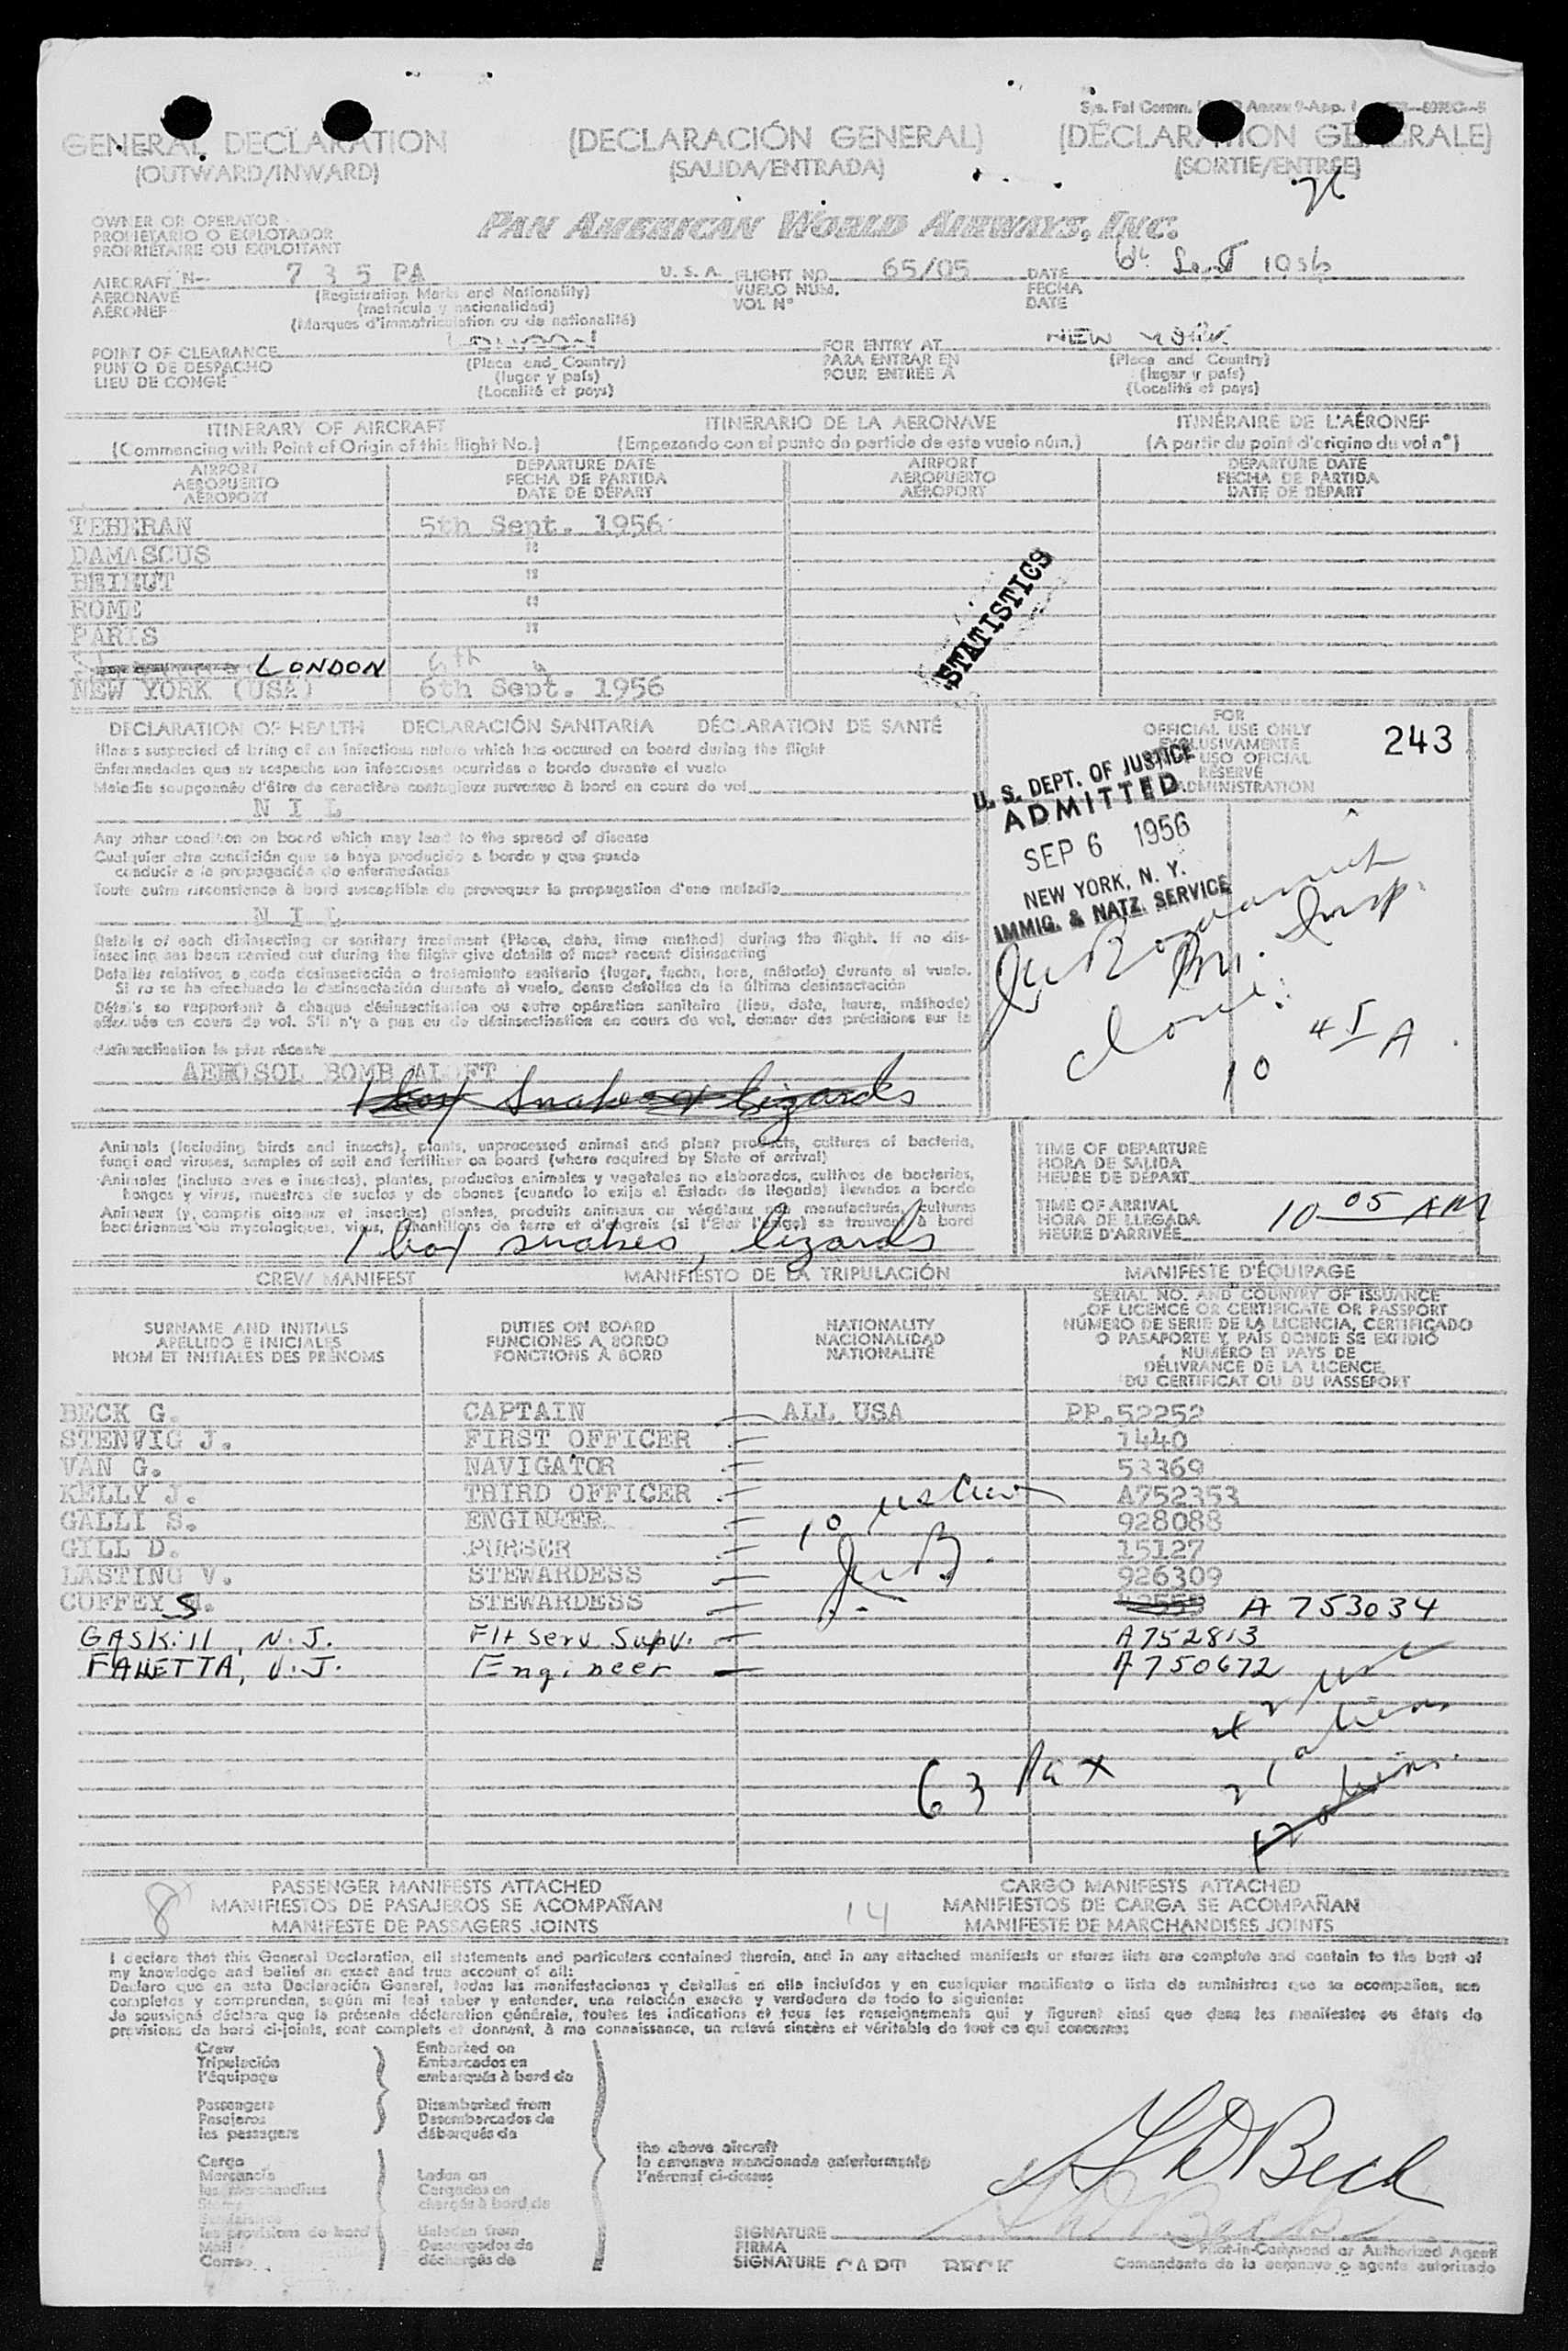 GENERAL DECLARATION (DECLARACIÓN GENERAL) (DÉCLARATION GÉNÉRALE)
(OUTWARD/INWARD) (SALIDA/ENTRADA) (SORTIE/ENTRÉE)
OWNER OR OPERATOR
PROPIETARIO O EXPLOTADOR
PROPRIÉTAIRE OU EXPLOITANT
PAN AMERICAN WORLD AIRWAYS, INC.
AIRCRAFT N- 735 PA U. S. A. FLIGHT NO. 65/05 DATE 6th Sept 1956
AERONAVE (Registration Marks and Nationality) VUELO NUM. FECHA
AÉRONEF (matricula y nacionalidad) VOL Nº DATE
(Marques d'immatriculation ou de nationalité)
POINT OF CLEARANCE LONDON FOR ENTRY AT NEW YORK
PUNTO DE DESPACHO (Place and Country) PARA ENTRAR EN (Place and Country)
LIEU DE CONGÉ (lugar y país) POUR ENTRÉE À (lugar y país)
(Localité et pays) (Localité et pays)
ITINERARY OF AIRCRAFT ITINERARIO DE LA AERONAVE ITINÉRAIRE DE L'AÉRONEF
(Commencing with Point of Origin of this flight No.) (Empezando con el punto de partida de este vuelo núm.) (A partir du point d'origine du vol nº)
AIRPORT DEPARTURE DATE AIRPORT DEPARTURE DATE
AEROPUERTO FECHA DE PARTIDA AEROPUERTO FECHA DE PARTIDA
AÉROPORT DATE DE DÉPART AÉROPORT DATE DE DÉPART
TEHERAN 5th Sept. 1956
DAMASCUS "
BEIRUT "
ROME "
PARIS "
LONDON 6th "
NEW YORK (USA) 6th Sept. 1956
STATISTICS
DECLARATION OF HEALTH DECLARACIÓN SANITARIA DÉCLARATION DE SANTÉ
Illness suspected of being of an infectious nature which has occured on board during the flight
Enfermedades que se sospecha son infecciosas ocurridas a bordo durante el vuelo
Maladie soupçonnée d'être de caractère contagieux survenue à bord en cours de vol
NIL
Any other condition on board which may lead to the spread of disease
Cualquier otra condición que se haya producido a bordo y que pueda
conducir a la propagación de enfermedades
Toute autre circonstance à bord susceptible de provoquer la propagation d'une maladie
NIL
Details of each disinsecting or sanitary treatment (Place, date, time method) during the flight. If no dis-
insecting has been carried out during the flight give details of most recent disinsecting
Detalles relativos a cada desinsectación o tratamiento sanitario (lugar, fecha, hora, método) durante el vuelo.
Si no se ha efectuado la desinsectación durante el vuelo, dense detalles de la última desinsectación
Détails se rapportant à chaque désinsectisation ou autre opération sanitaire (lieu, date, heure, méthode)
effectuée en cours de vol. S'il n'y a pas eu de désinsectisation en cours de vol, donner des précisions sur la
désinsectisation la plus récente
AEROSOL BOMB ALOFT
1 box snakes & lizards
FOR
OFFICIAL USE ONLY
EXCLUSIVAMENTE
USO OFICIAL
RÉSERVÉ
ADMINISTRATION
243
U. S. DEPT. OF JUSTICE
ADMITTED
SEP 6 1956
NEW YORK, N. Y.
IMMIG. & NATZ. SERVICE
Insp.
10 45 A
Animals (including birds and insects), plants, unprocessed animal and plant products, cultures of bacteria,
fungi and viruses, samples of soil and fertilizer on board (where required by State of arrival)
Animales (incluso aves e insectos), plantas, productos animales y vegetales no elaborados, cultivos de bacterias,
hongos y virus, muestras de suelos y de abonos (cuando lo exija el Estado de llegada) llevados a bordo
Animaux (y compris oiseaux et insectes) plantes, produits animaux ou végétaux non manufacturés, cultures
bactériennes ou mycologiques, virus, échantillons de terre et d'engrais (si l'État l'exige) se trouvant à bord
1 box snakes, lizards
TIME OF DEPARTURE
HORA DE SALIDA
HEURE DE DÉPART
TIME OF ARRIVAL
HORA DE LLEGADA
HEURE D'ARRIVÉE
10 05 AM
CREW MANIFEST MANIFIESTO DE LA TRIPULACIÓN MANIFESTE D'ÉQUIPAGE
SURNAME AND INITIALS
APELLIDO E INICIALES
NOM ET INITIALES DES PRÉNOMS
DUTIES ON BOARD
FUNCIONES A BORDO
FONCTIONS À BORD
NATIONALITY
NACIONALIDAD
NATIONALITÉ
SERIAL NO. AND COUNTRY OF ISSUANCE
OF LICENCE OR CERTIFICATE OR PASSPORT
NÚMERO DE SERIE DE LA LICENCIA, CERTIFICADO
O PASAPORTE Y PAÍS DONDE SE EXPIDIÓ
NUMÉRO ET PAYS DE
DÉLIVRANCE DE LA LICENCE,
DU CERTIFICAT OU DU PASSEPORT
BECK G. CAPTAIN ALL USA PP.52252
STENVIG J. FIRST OFFICER 1440
VAN G. NAVIGATOR 53369
KELLY J. THIRD OFFICER A752353
GALLI S. ENGINEER 928088
GILL D. PURSER 15127
LASTING V. STEWARDESS 926309
COFFEY S. STEWARDESS A 753034
GASKill, N.J. Flt Serv Supv. A752813
FAHETTA, V.J. Engineer A750672
10 us Crew
63 Pax
42 usc
21 aliens
8 PASSENGER MANIFESTS ATTACHED 14 CARGO MANIFESTS ATTACHED
MANIFIESTOS DE PASAJEROS SE ACOMPAÑAN MANIFIESTOS DE CARGA SE ACOMPAÑAN
MANIFESTE DE PASSAGERS JOINTS MANIFESTE DE MARCHANDISES JOINTS
I declare that this General Declaration, all statements and particulars contained therein, and in any attached manifests or stores lists are complete and contain to the best of
my knowledge and belief an exact and true account of all:
Declaro que en esta Declaración General, todas las manifestaciones y detalles en ella incluídos y en cualquier manifiesto o lista de suministros que se acompañen, son
completos y comprenden, según mi leal saber y entender, una relación exacta y verdadera de todo lo siguiente:
Je soussigné déclare que la présente déclaration générale, toutes les indications et tous les renseignements qui y figurent ainsi que dans les manifestes ou états de
provisions de bord ci-joints, sont complets et donnent, à ma connaissance, un relevé sincère et véritable de tout ce qui concerne:
Crew Embarked on
Tripulación Embarcados en
l'équipage embarqués à bord de
Passengers Disembarked from
Pasajeros Desembarcados de
les passagers débarqués de
Cargo
Mercancía Laden on
les marchandises Cargados en
chargés à bord de
les provisions de bord Unladen from
Mail Descargados de
Correo déchargés de
the above aircraft
la aeronave mencionada anteriormente
l'aéronef ci-dessus
G D Beck
SIGNATURE
FIRMA
SIGNATURE CAPT BECK
Pilot-in-Command or Authorized Agent
Comandante de la aeronave o agente autorizado